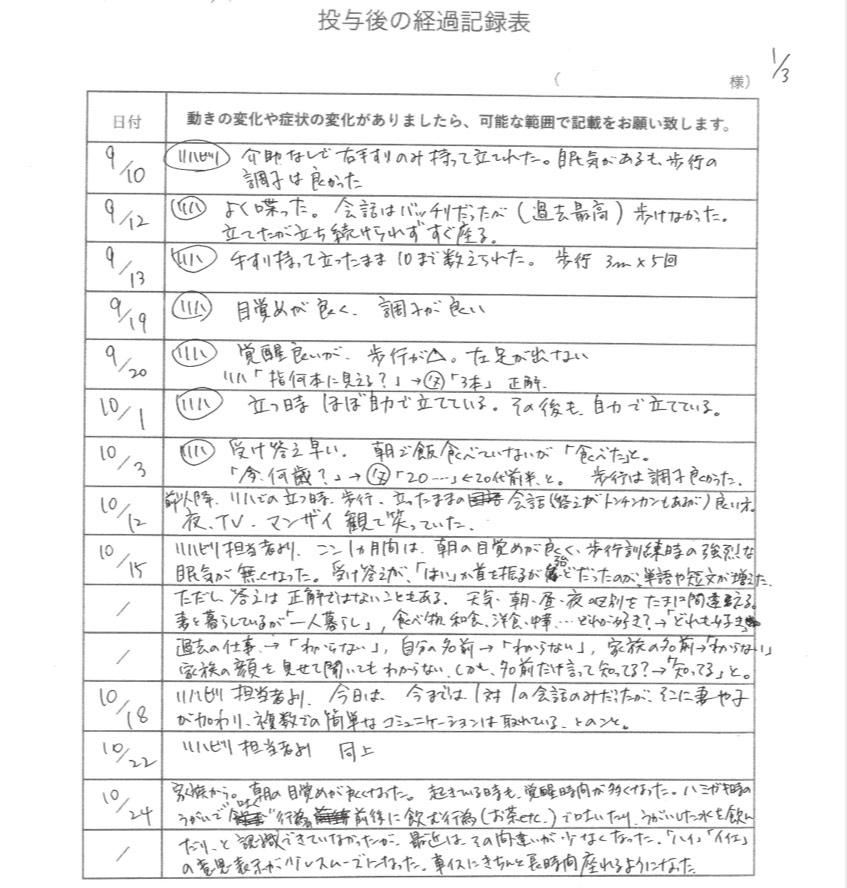 投与後の経過記録表
1/3
( 様)
日付 動きの変化や症状の変化がありましたら、可能な範囲で記載をお願い致します。
9/10 リハビリ 介助なしで右手すりのみ持って立てれた。眠気があるも、歩行の
調子は良かった
9/12 リハ よく喋った。会話はバッチリだったが(過去最高)歩けなかった。
立てたが立ち続けられずすぐ座る。
9/13 リハ 手すり持って立ったまま10まで数えられた。歩行 3m×5回
9/19 リハ 目覚めが良く、調子が良い
9/20 リハ 覚醒良いが、歩行が△。左足が出ない
リハ「指何本に見える?」→「3本」正解.
10/1 リハ 立つ時 ほぼ自力で立てている。その後も、自力で立てている。
10/3 リハ 受け答え早い。朝ご飯食べていないが「食べた」と。
「今、何歳?」→「20…」←20代前半、と。歩行は調子良かった.
10/12 前以降、リハでの立つ時、歩行、立ったままの会話(答えがトンチンカンもあるが)良い才。
夜、TV、マンザイ観て笑っていた.
10/15 リハビリ担当者より、ここ1ヵ月間は、朝の目覚めが良く、歩行訓練時の強烈な
眠気が無くなった。受け答えが、「はい」か首を振るが殆どだったのが、単語や短文が増えた.
/ ただし、答えは正解ではないこともある。天気、朝、昼、夜の区別をたまに間違える。
妻と暮らしているが「一人暮らし」,食べ物、和食、洋食、中華…どれが好き?→「どれも好き」
/ 過去の仕事→「わからない」,自分の名前→「わからない」,家族の名前→「わからない」
家族の顔を見せて聞いてもわからない.しかも、名前だけ言って知ってる?→「知ってる」と。
10/18 リハビリ担当者より、今日は、今までは1対1の会話のみだったが、そこに妻や子
が加わり、複数での簡単なコミュニケーションは取れている、とのこと。
10/22 リハビリ担当者より 同上
10/24 家族から。朝の目覚めが良くなった。起きている時も、覚醒時間が多くなった。ハミガキ時の
うがいで"吐く"行為 前後に飲む行為(お茶etc.)で吐いたり、うがいした水を飲ん
/ だり、と認識できていなかったが、最近は、その間違いが少なくなった。「ハイ」「イイエ」
の意思表示が少しスムーズになった。車イスにきちんと長時間座れるようになった.